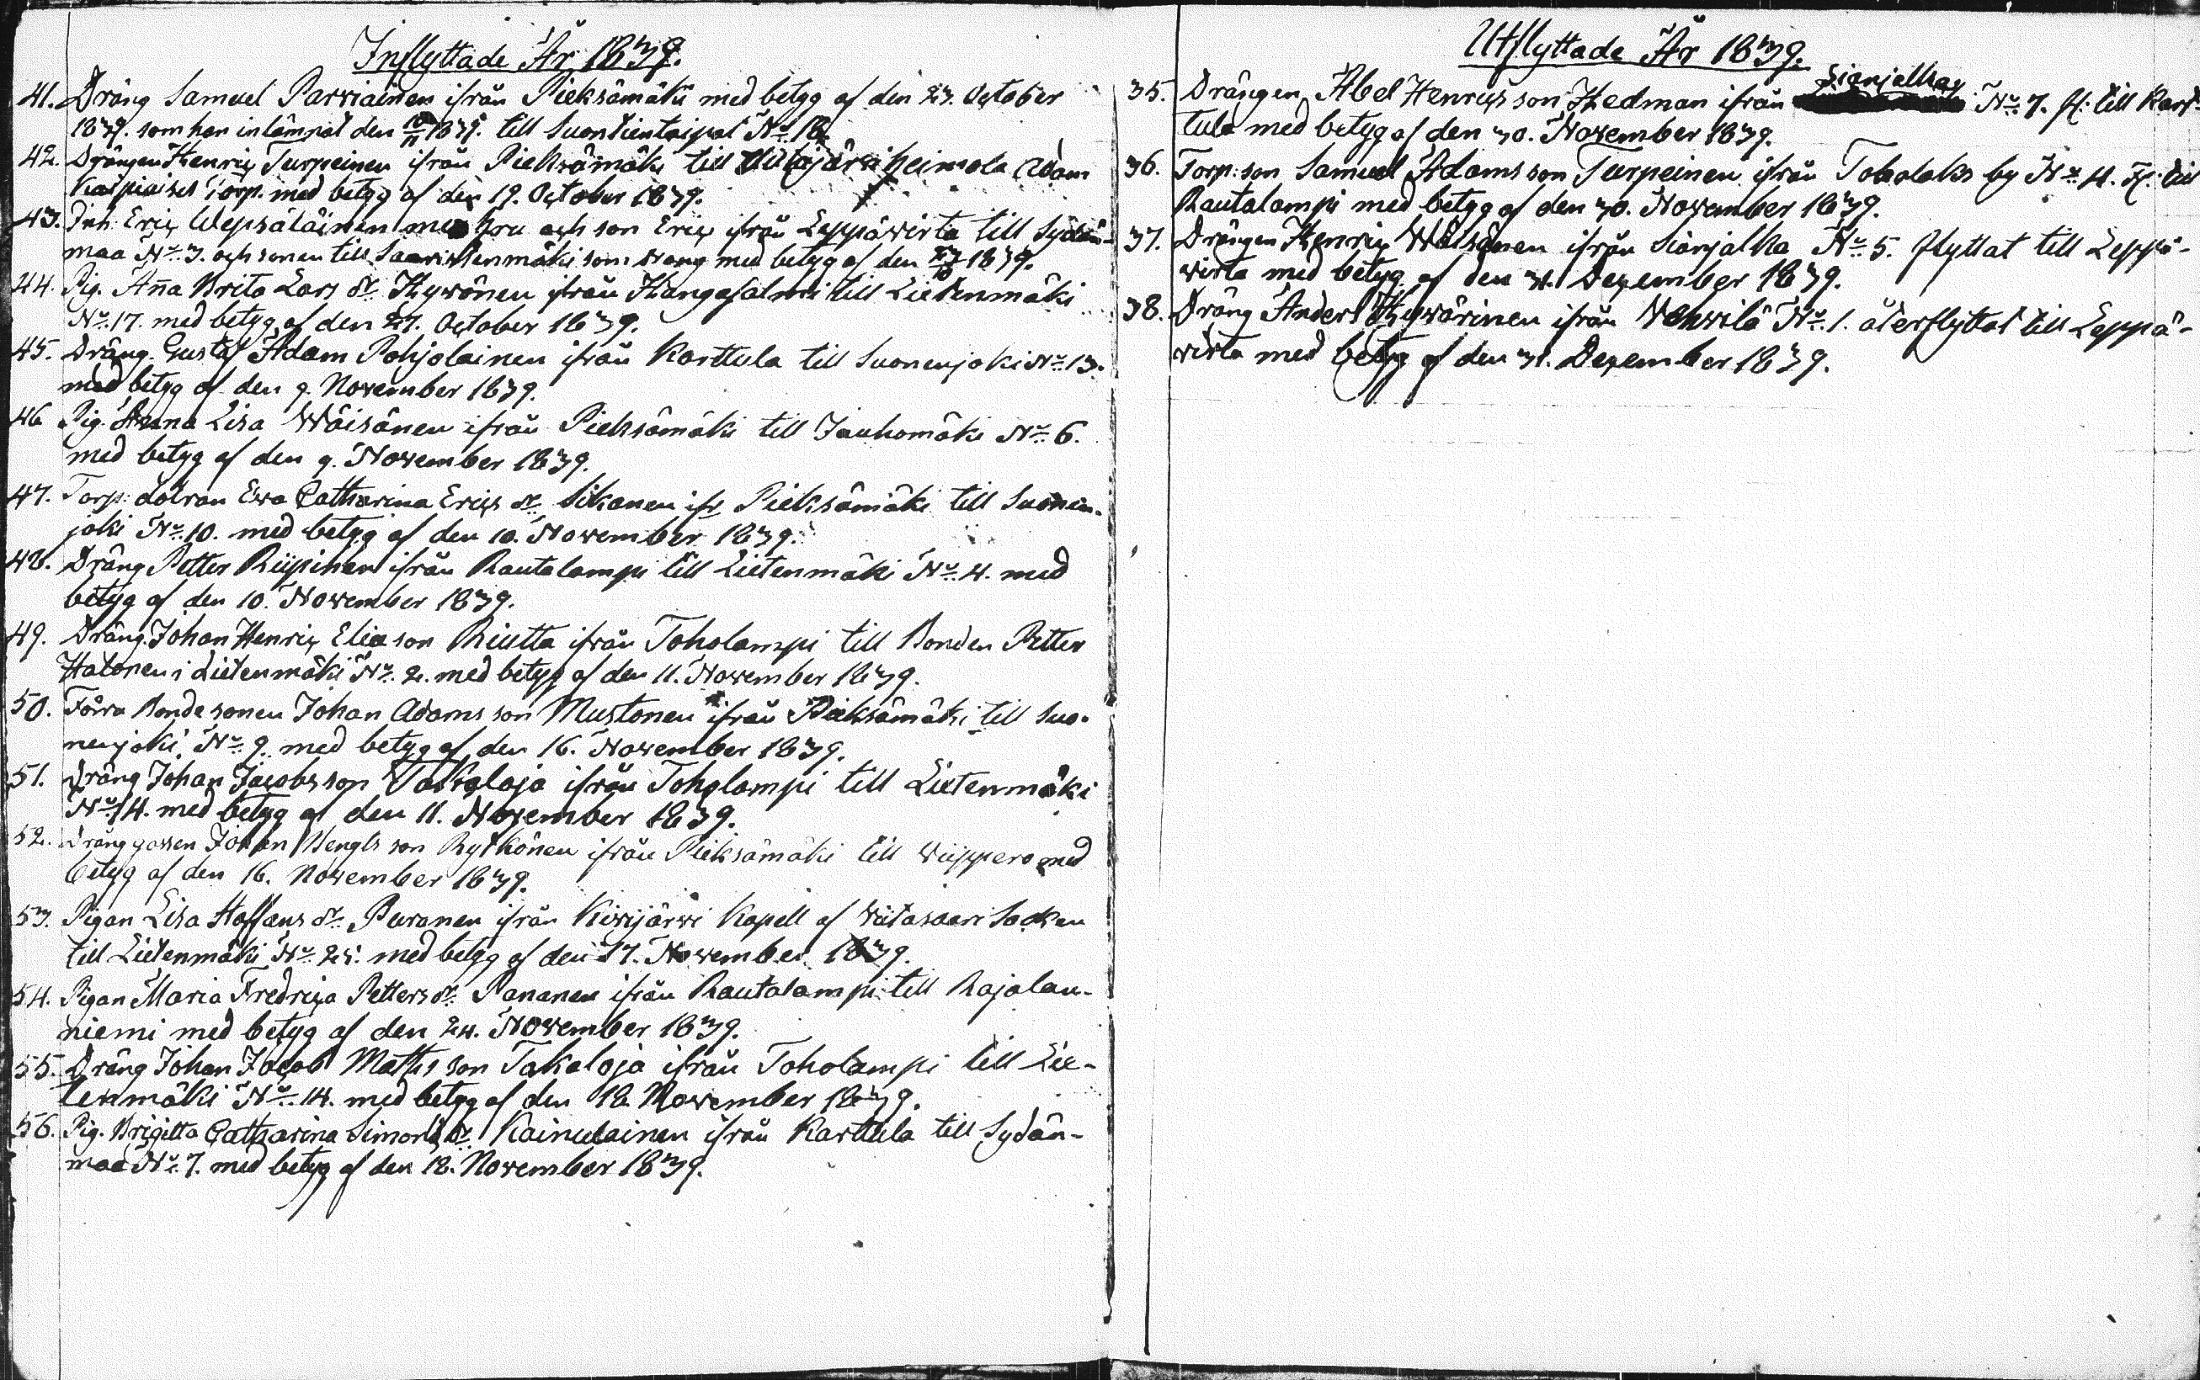 Inflyttade År 1839.
41. Dräng Samuel Parviainen ifrån Pieksämäki med betyg af den 23. October
1839. som han inlämnat den 1839. till Suontientaipal No. 18.
42. Drängen Henric Turpeinen ifrån Pieksämäki till heimola Adam
Torp. med betyg af den 19. October 1839.
43. Inh. Eric Wepsäläinen med hru och son Eric ifrån Leppäwirta till Sydän-
maa No. 3. och sonen till som med betyg af den 1839.
44. Pig. Anna Brita Lars dr. Hywönen ifrån Kangasalmi till Lietenmäki
No. 17. med betyg af den 27. October 1839.
45. Dräng. Gustaf Adam Pohjolainen ifrån Karttula till Suonenjoki No. 13.
med betyg af den 9. November 1839.
46. Pig. Anna Lisa Wäisänen ifrån Pieksämäki till Jauhomäki No. 6.
med betyg af den 9. November 1839.
47. Torp. dotran Ewa Catharina Erics dr. Sikanen ifr. Pieksämäki till Suonen-
joki No. 10. med betyg af den 10. November 1839.
48. Dräng Petter Riipinen ifrån Rautalampi till Lietenmäki No. 4. med
betyg af den 10. November 1839.
49. Dräng. Johan Henric Elia son Riutta ifrån Toholampi till Bonden Petter
Halonen i Lietenmäki No. 2. med betyg af den 11. November 1839.
50. Förra Bonde sonen Johan Adams son Mustonen ifrån Pieksämäki till Suo-
nenjoki No. 9. med betyg af den 16. November 1839.
51. Dräng Johan Jacobs son Takaloja ifrån Toholampi till Lietenmäki
No. 14. med betyg af den 11. November 1839.
52. Dränggossen Johan Bengts son Rytkönen ifrån Pieksämäki till Wiippero med
betyg af den 16. November 1839.
53. Pigan Lisa Staffans dr. Puranen ifrån Kiwijärwi Kapell af Wiitasaari Socken
till Lietenmäki No. 25. med betyg af den 17. November 1839.
54. Pigan Maria Fredrica Petters dr. Pananen ifrån Rautalampi till Rajalan-
niemi med betyg af den 24. November 1839.
55. Dräng Johan Jacob Matts son Takaloja ifrån Toholampi till Lie-
tenmäki No. 14. med betyg af den 18. November 1839.
56. Pig. Brigitta Catharina Simons dr. Kainulainen ifrån Karttula till Sydän-
maa No. 7. med betyg af den 18. November 1839.
Utflyttade År 1839.
35. Drängen Abel Henrics son Hedman ifrån Sianjalka No. 7. fl. till Kart-
tula med betyg af den 30. November 1839.
36. Torp. son Samuel Adams son Turpeinen ifrån Toholaks by No. 4. fl. till
Rautalampi med betyg af den 30. November 1839.
37. Drängen Henric Wäisänen ifrån Sianjalka No. 5. flyttat till Leppä-
wirta med betyg af den 31. December 1839.
38. Dräng Anders Hywärinen ifrån Wehwilä No. 1. återflyttat till Leppä-
wirta med betyg af den 31. December 1839.